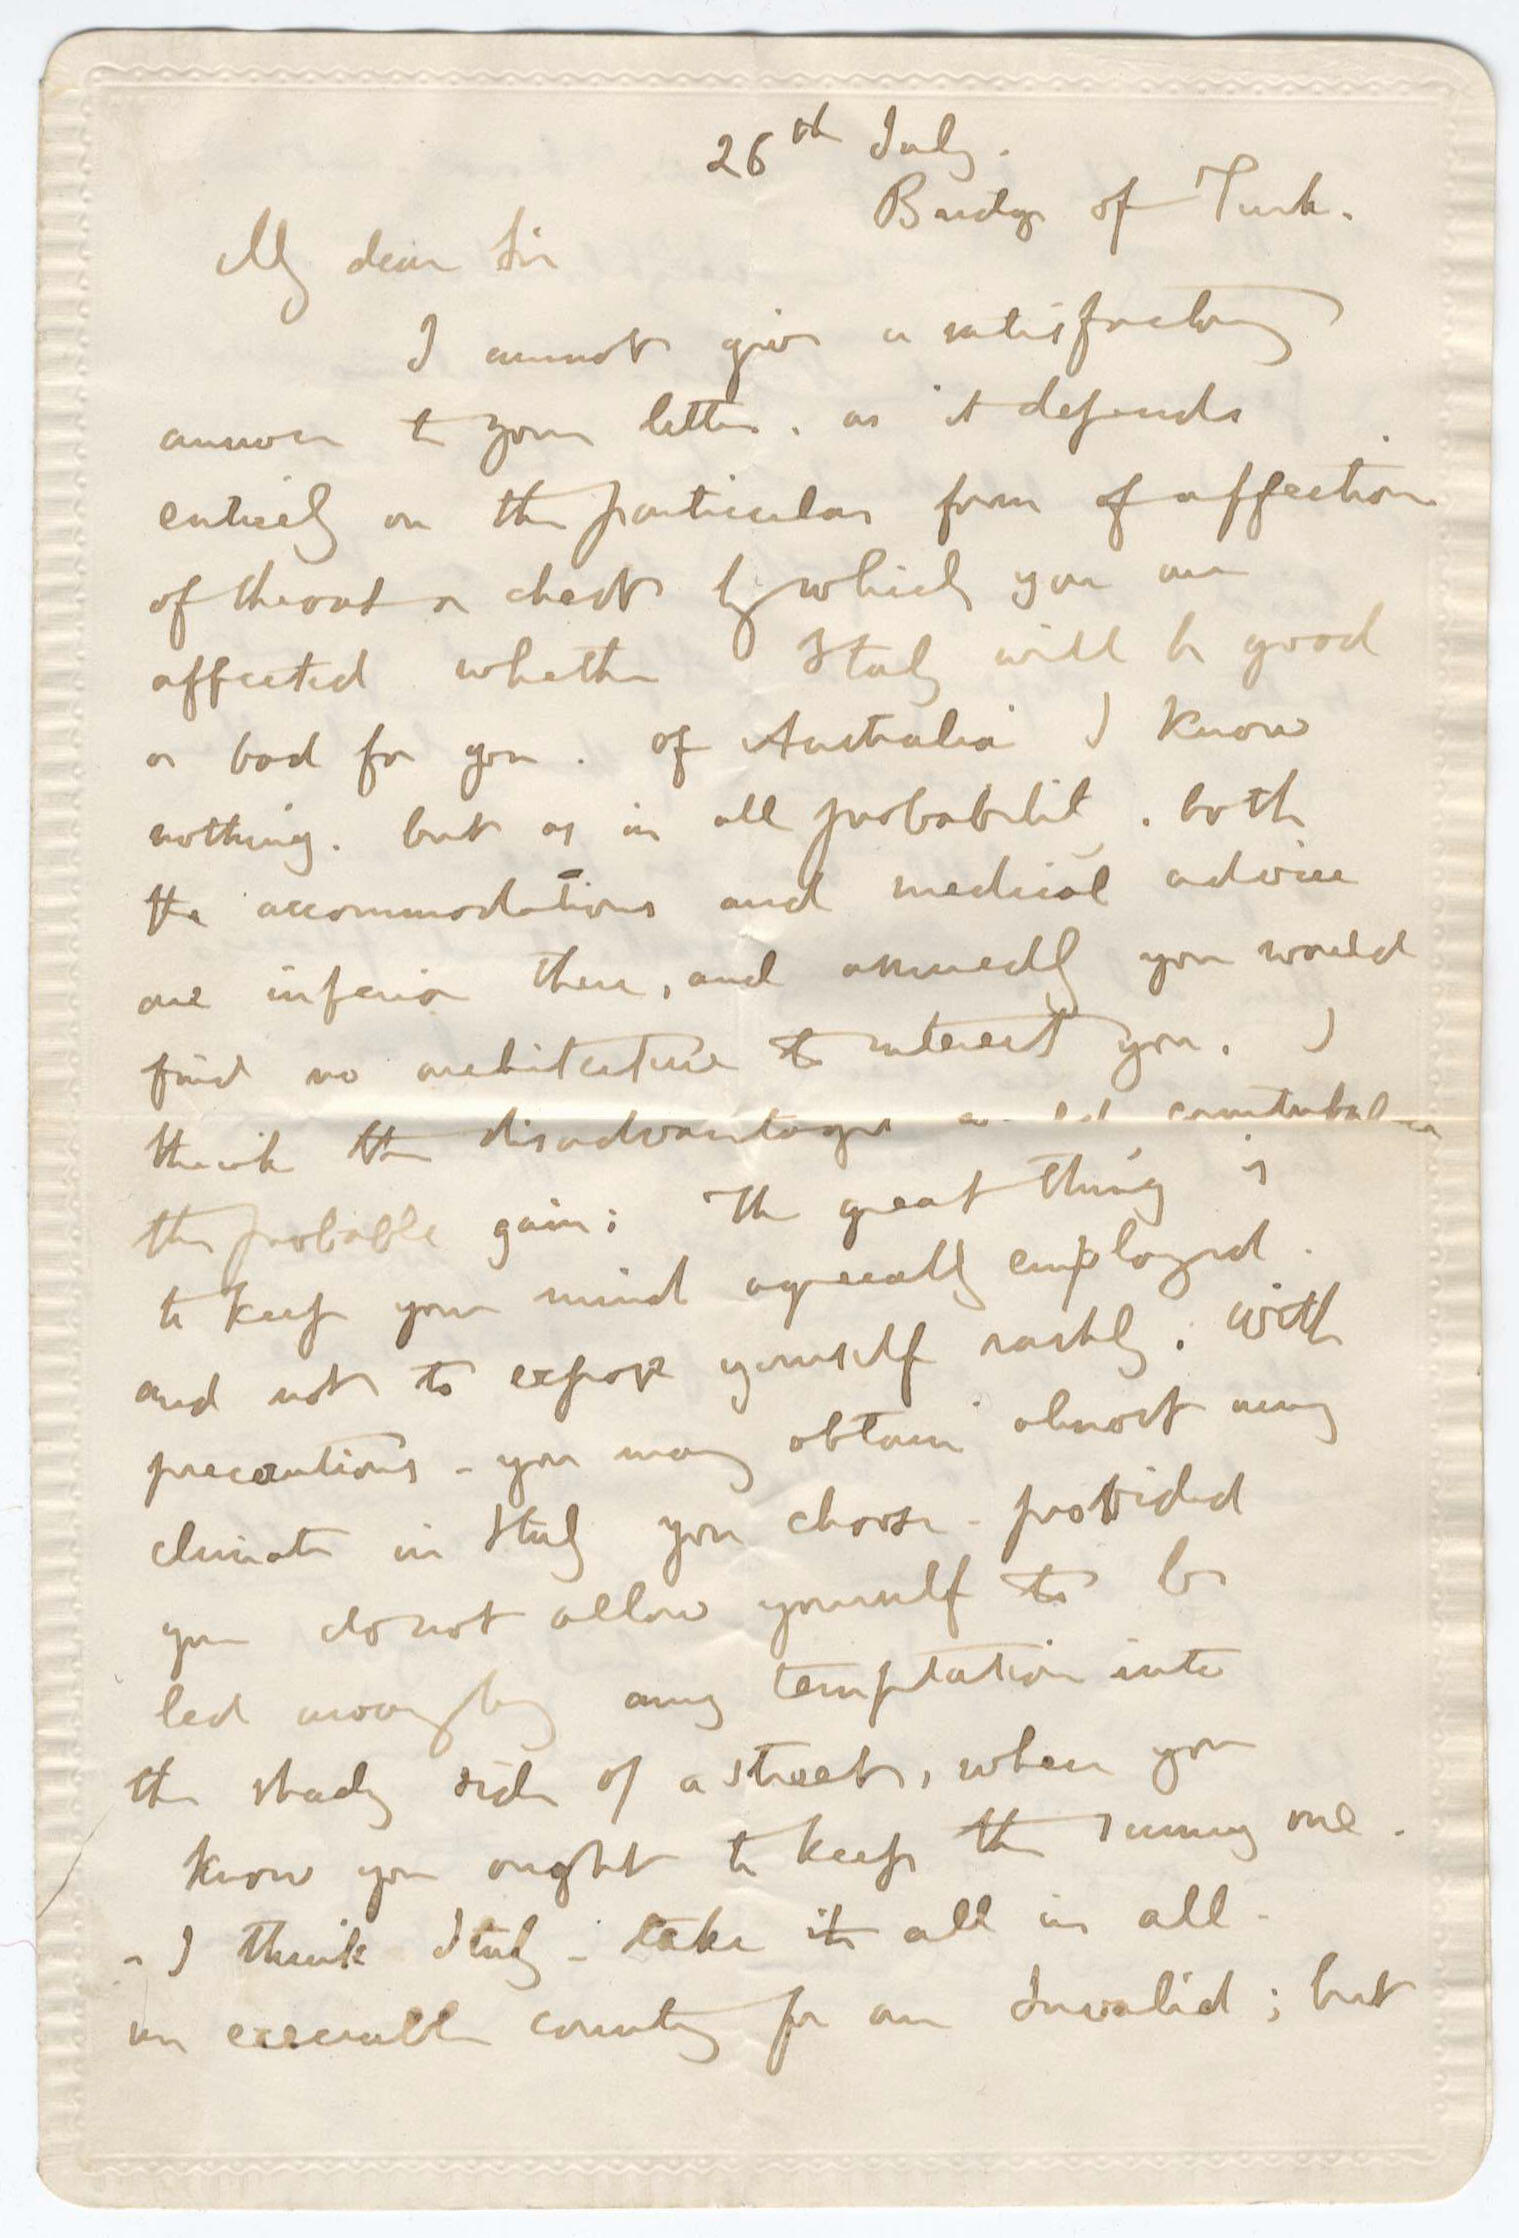 26th July.
Bridge of Turk.
My dear Sir
I cannot give a satisfactory
answer to your letter. as it depends
entirely on the particular form of affection
of throat or chest by which you are
affected whether Italy will be good
or bad for you. of Australia I know
nothing. but as in all probability. both
the accommodations and medical advice
are inferior there, and assuredly you would
find no architecture to interest you. I
think the disadvantages would counterbalance
the probable gain: The great thing is
to keep your mind agreeably employed.
and not to expose yourself rashly. With
precautions - you may obtain almost any
climate in Italy you choose - provided
you do not allow yourself to be
led away by any temptation into
the shady side of a street, when you
know you ought to keep the sunny one.
- I think Italy - take it all in all -
an execrable country for an Invalid; but